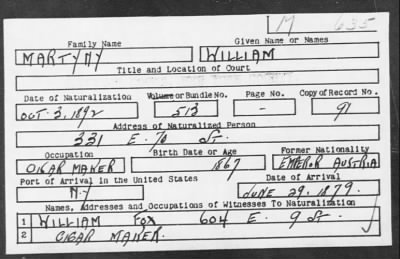 M 635
Family Name Given Name or Names
MARTYNY WILLIAM
Title and Location of Court
Date of Naturalization Volume or Bundle No. Page No. Copy of Record No.
OCT. 3, 1892 513 - 91
Address of Naturalized Person
331 E. 70 St.
Occupation Birth Date or Age Former Nationality
CIGAR MAKER 1867 EMEROR AUSTRIA
Port of Arrival in the United States Date of Arrival
N.Y JUNE 29. 1879.
Names, Addresses and Occupations of Witnesses To Naturalization
1 WILLIAM FOX 604 E. 9 St.
2 CIGAR MAKER.